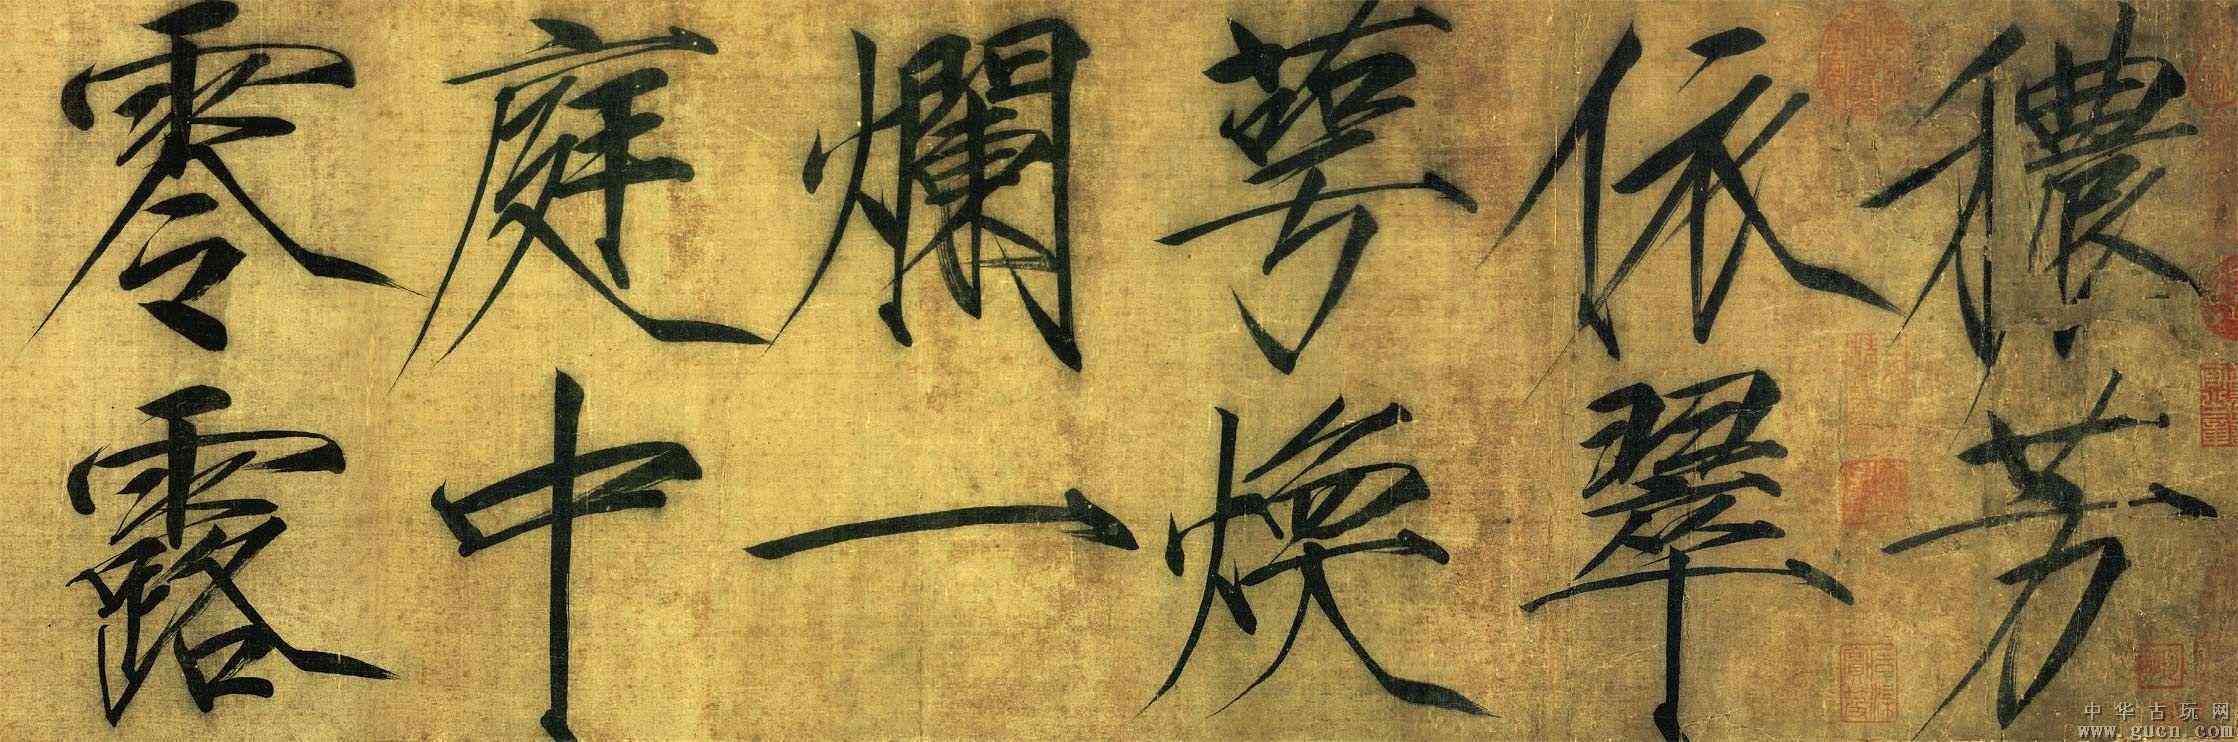 穠芳
依翠
萼煥
爛一
庭中
零露
中华古玩网
www.gucn.com